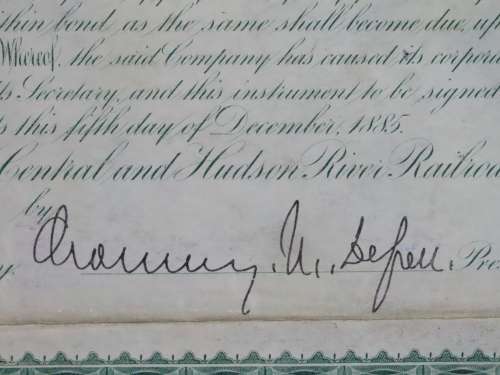 within bond, as the same shall become due, up
Whereof, the said Company has caused its corpora
its Secretary, and this instrument to be signed
this fifth day of December, 1885.
Central and Hudson River Railroa
by
Chauncey. M. Depew. Pres
y.